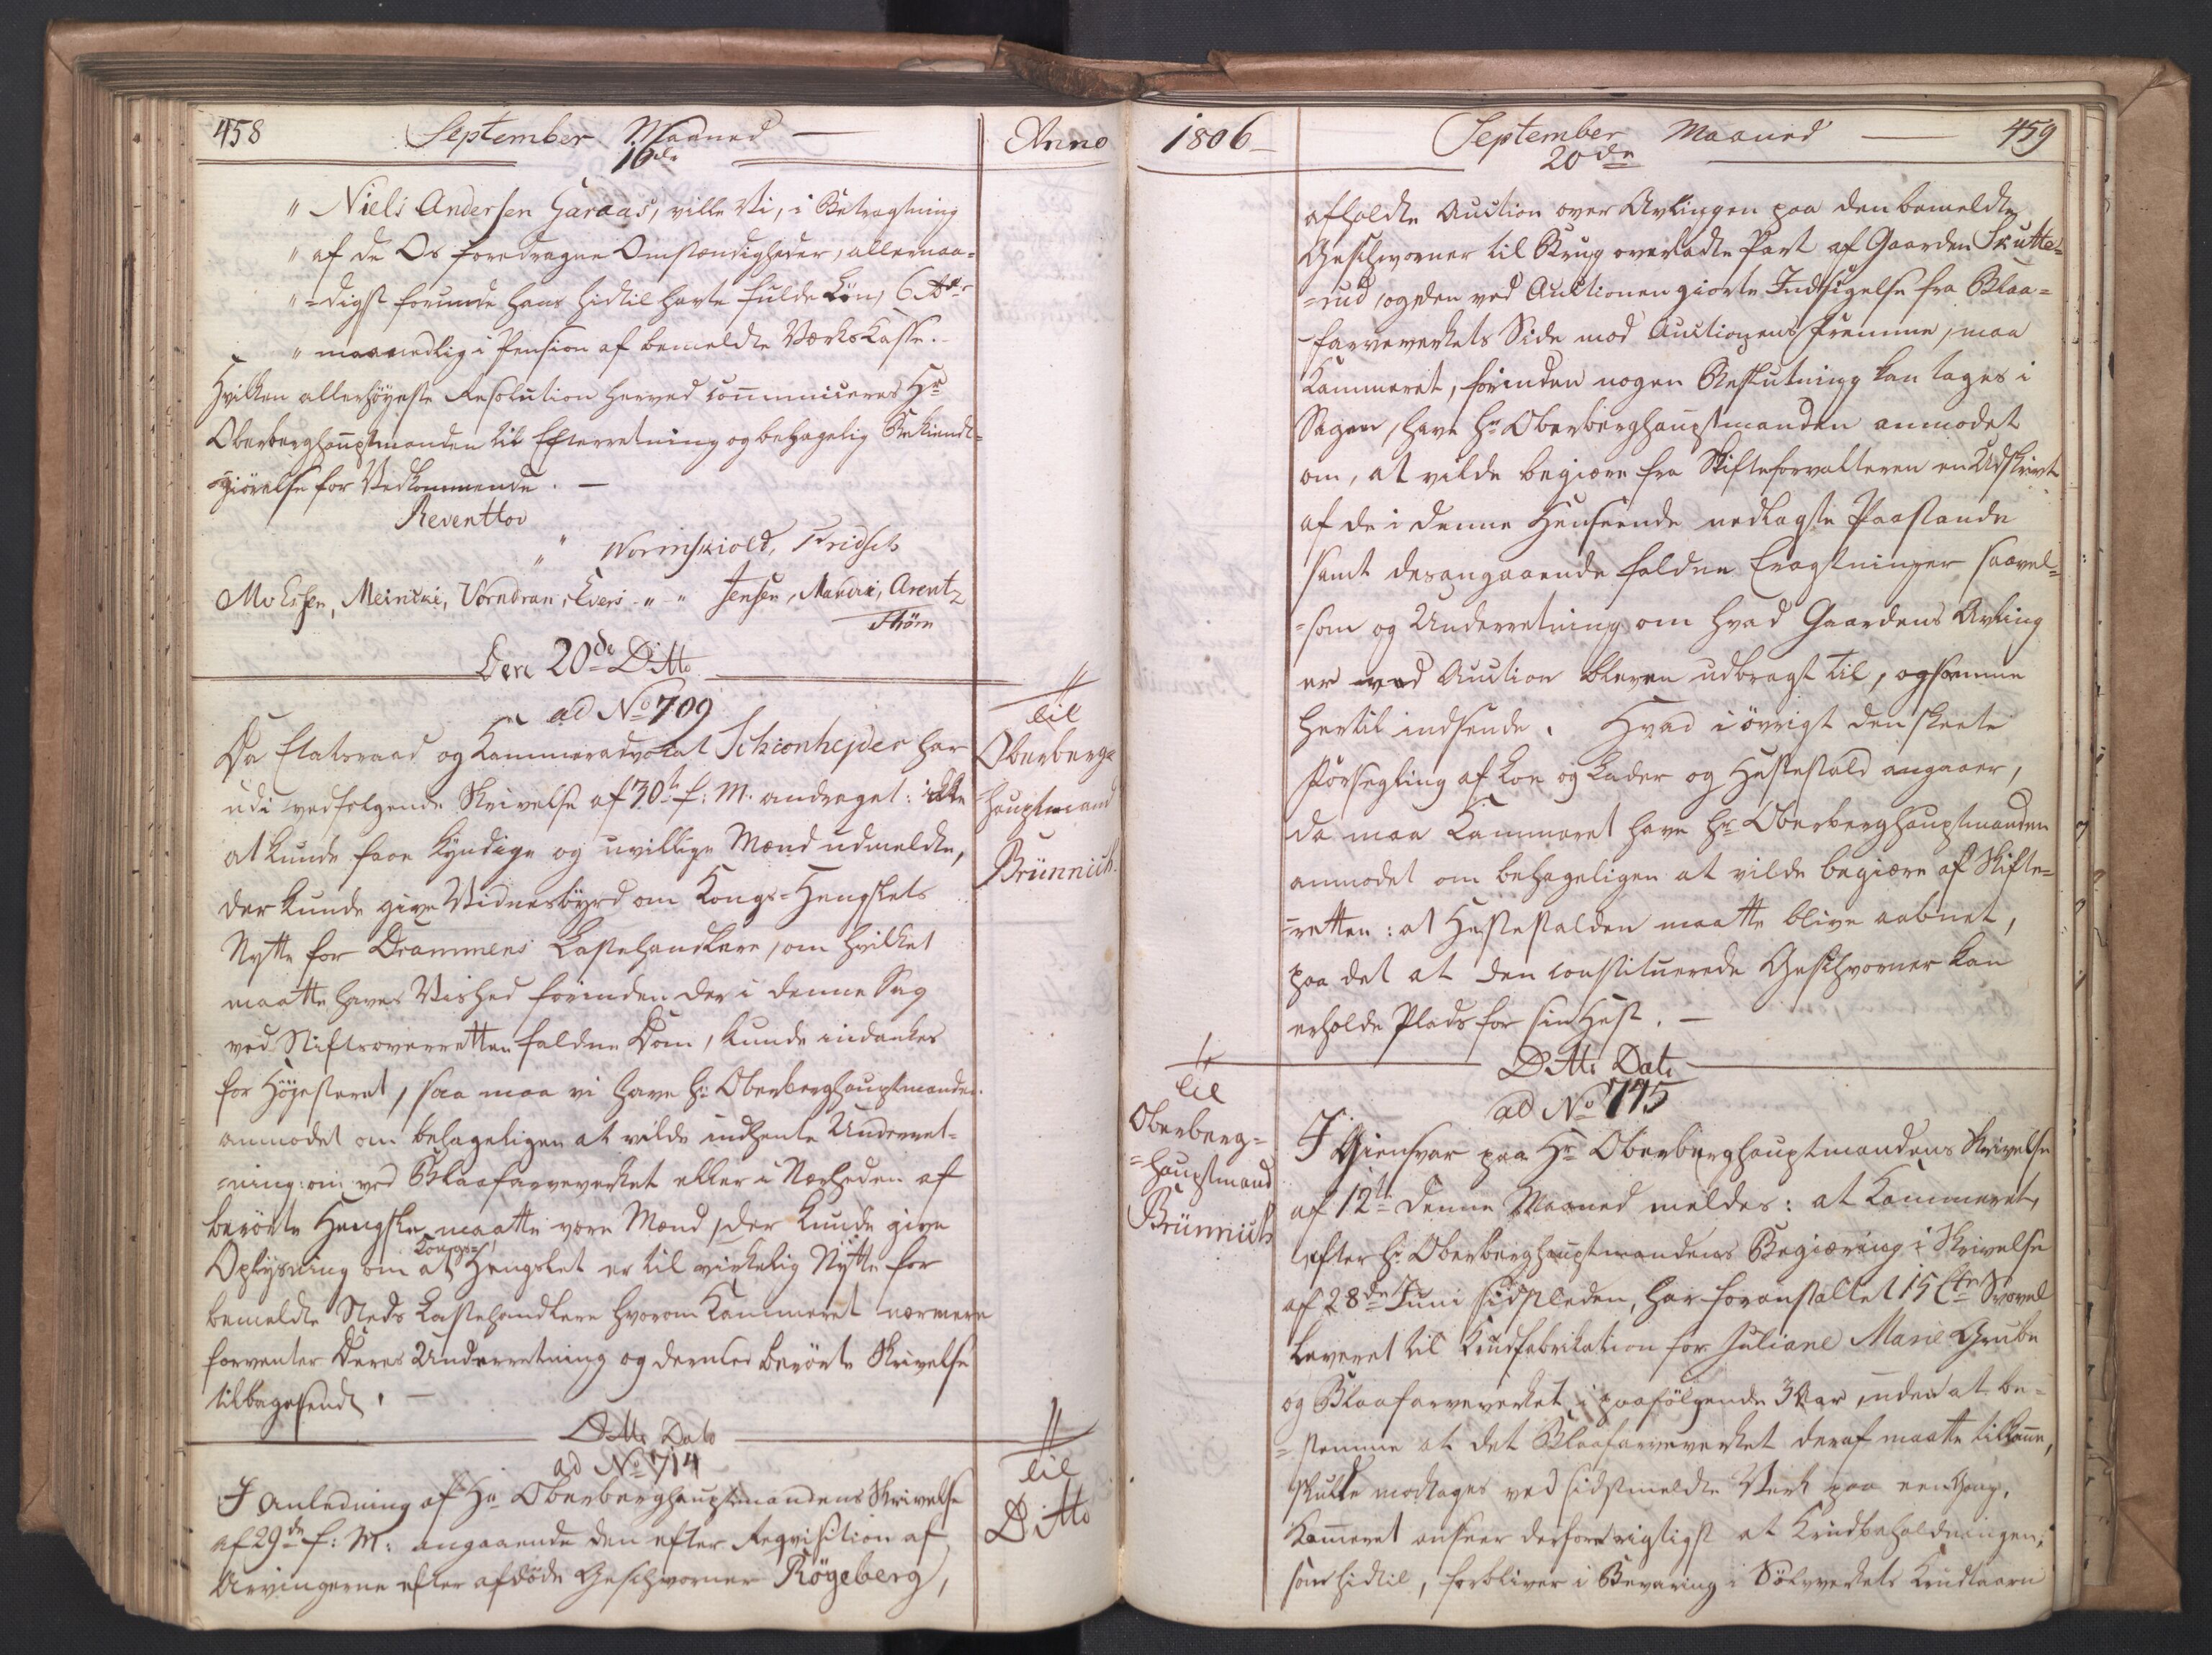 458 September Maaned — Anno
16de
" Niels Andersen Garaas, ville Vi, i Betragtning
" af de Os foredragne Omstændigheder, allernaa=
"=digst forunde hans hidtil havte fulde Løn, 6 rdr
" maanedlig i Pension af bemeldte Værks Kasse.
Hvilken allerhöyeste Resolution herved communiceres Hr
Oberberghauptmanden til Efterretning og behagelig Bekiendt=
=giörelse for Vedkommende. —
Reventlov
" Wormskiold, Fridsch
Moltzen, Meincke, Vorndran, Evers " " Jensen, Arentz
Den 20de Ditto
ad No 709
Da Etatsraad og Kammeradvocat Schiönhejder har
udi vedfølgende Skrivelse af 30te f: M. andraget: ikke
at kunde faae kyndige og uvillige Mænd udmeldte,
der kunde give Vidnesbyrd om Kongs=Hengslets
Nytte for Drammens Lastehandlere, om hvilket
maatte haves Vished forinden der i denne Sag
ved Stiftsoverretten faldne Dom, kunde indankes
for Höyesteret, saa maa vi have Hr Oberberghauptmanden
anmodet om behageligen at vilde indhente Underret=
=ning: om ved Blaafarveverket eller i Nærheden af
berörte Hengsle maatte være Mænd, der kunde give
Oplysning om at Kongs= Hengslet er til virkelig Nytte for
bemeldte Steds Lastehandlere hvorom Kammeret nærmere
forventer Deres Underretning og dermed berörte Skrivelse
tilbagesendt. —
til
Oberberg=
=hauptmand
Brünnich.
Ditto Dato
ad No 714
I Anledning af Hr Oberberghauptmandens Skrivelse
af 29de f: M: angaaende den efter Reqvisition af
Arvingerne efter afdöde Geschworner Rögeberg,
til
Ditto
1806 — September Maaned — 459
20de
afholdte Auction over Avlingen paa den bemeldte
Geschworner til Brug overladte Part af Gaarden Skutte=
=rud, og den ved Auctionen giorte Indsigelse fra Blaa=
=farveverkets Side mod Auctionens Fremme, maa
Kammeret, forinden nogen Beslutning kan tages i
Sagen, have Hr Oberberghauptmanden anmodet
om, at vilde begiære fra Skifteforvalteren en Udskrivt
af de i denne Henseende nedlagte Paastande
samt desangaaende faldne Eragtninger saavel=
=som og Underretning om hvad Gaardens Avling
er ved Auction bleven udbragt til, og samme
hertil indsende. Hvad i övrigt den skeete
Forsegling af Loe og Lader og Hestestald angaaer,
da maa Kammeret have Hr Oberberghauptmanden
anmodet om behageligen at vilde begiære af Skifte=
=retten: at Hestestalden maatte blive aabnet,
paa det at den constituerede Geschworner kan
erholde Plads for sin Hest. —
Ditto Dato
ad No 775
til
Oberberg=
=hauptmand
Brünnich
I Giensvar paa Hr Oberberghauptmandens Skrivelse
af 12te denne Maaned meldes: at Kammeret,
efter Hr Oberberghauptmandens Begiæring i Skrivelse
af 28de Juni sidstleden, har foranstaltet 15 Ctn Svovel
leveret til Krudfabrikation for Juliane Marie Grube
og Blaafarveverket i paafölgende 3 Aar, uden at be=
=stemme at det Blaafarveverket deraf maatte tilkomme,
skulde modtages ved sidstmeldte Verk paa een Gang.
Kammeret anseer derfore rigtigst at Krudbeholdningen,
som hidtil, forbliver i Bevaring i Sölvverkets Krudtaarn